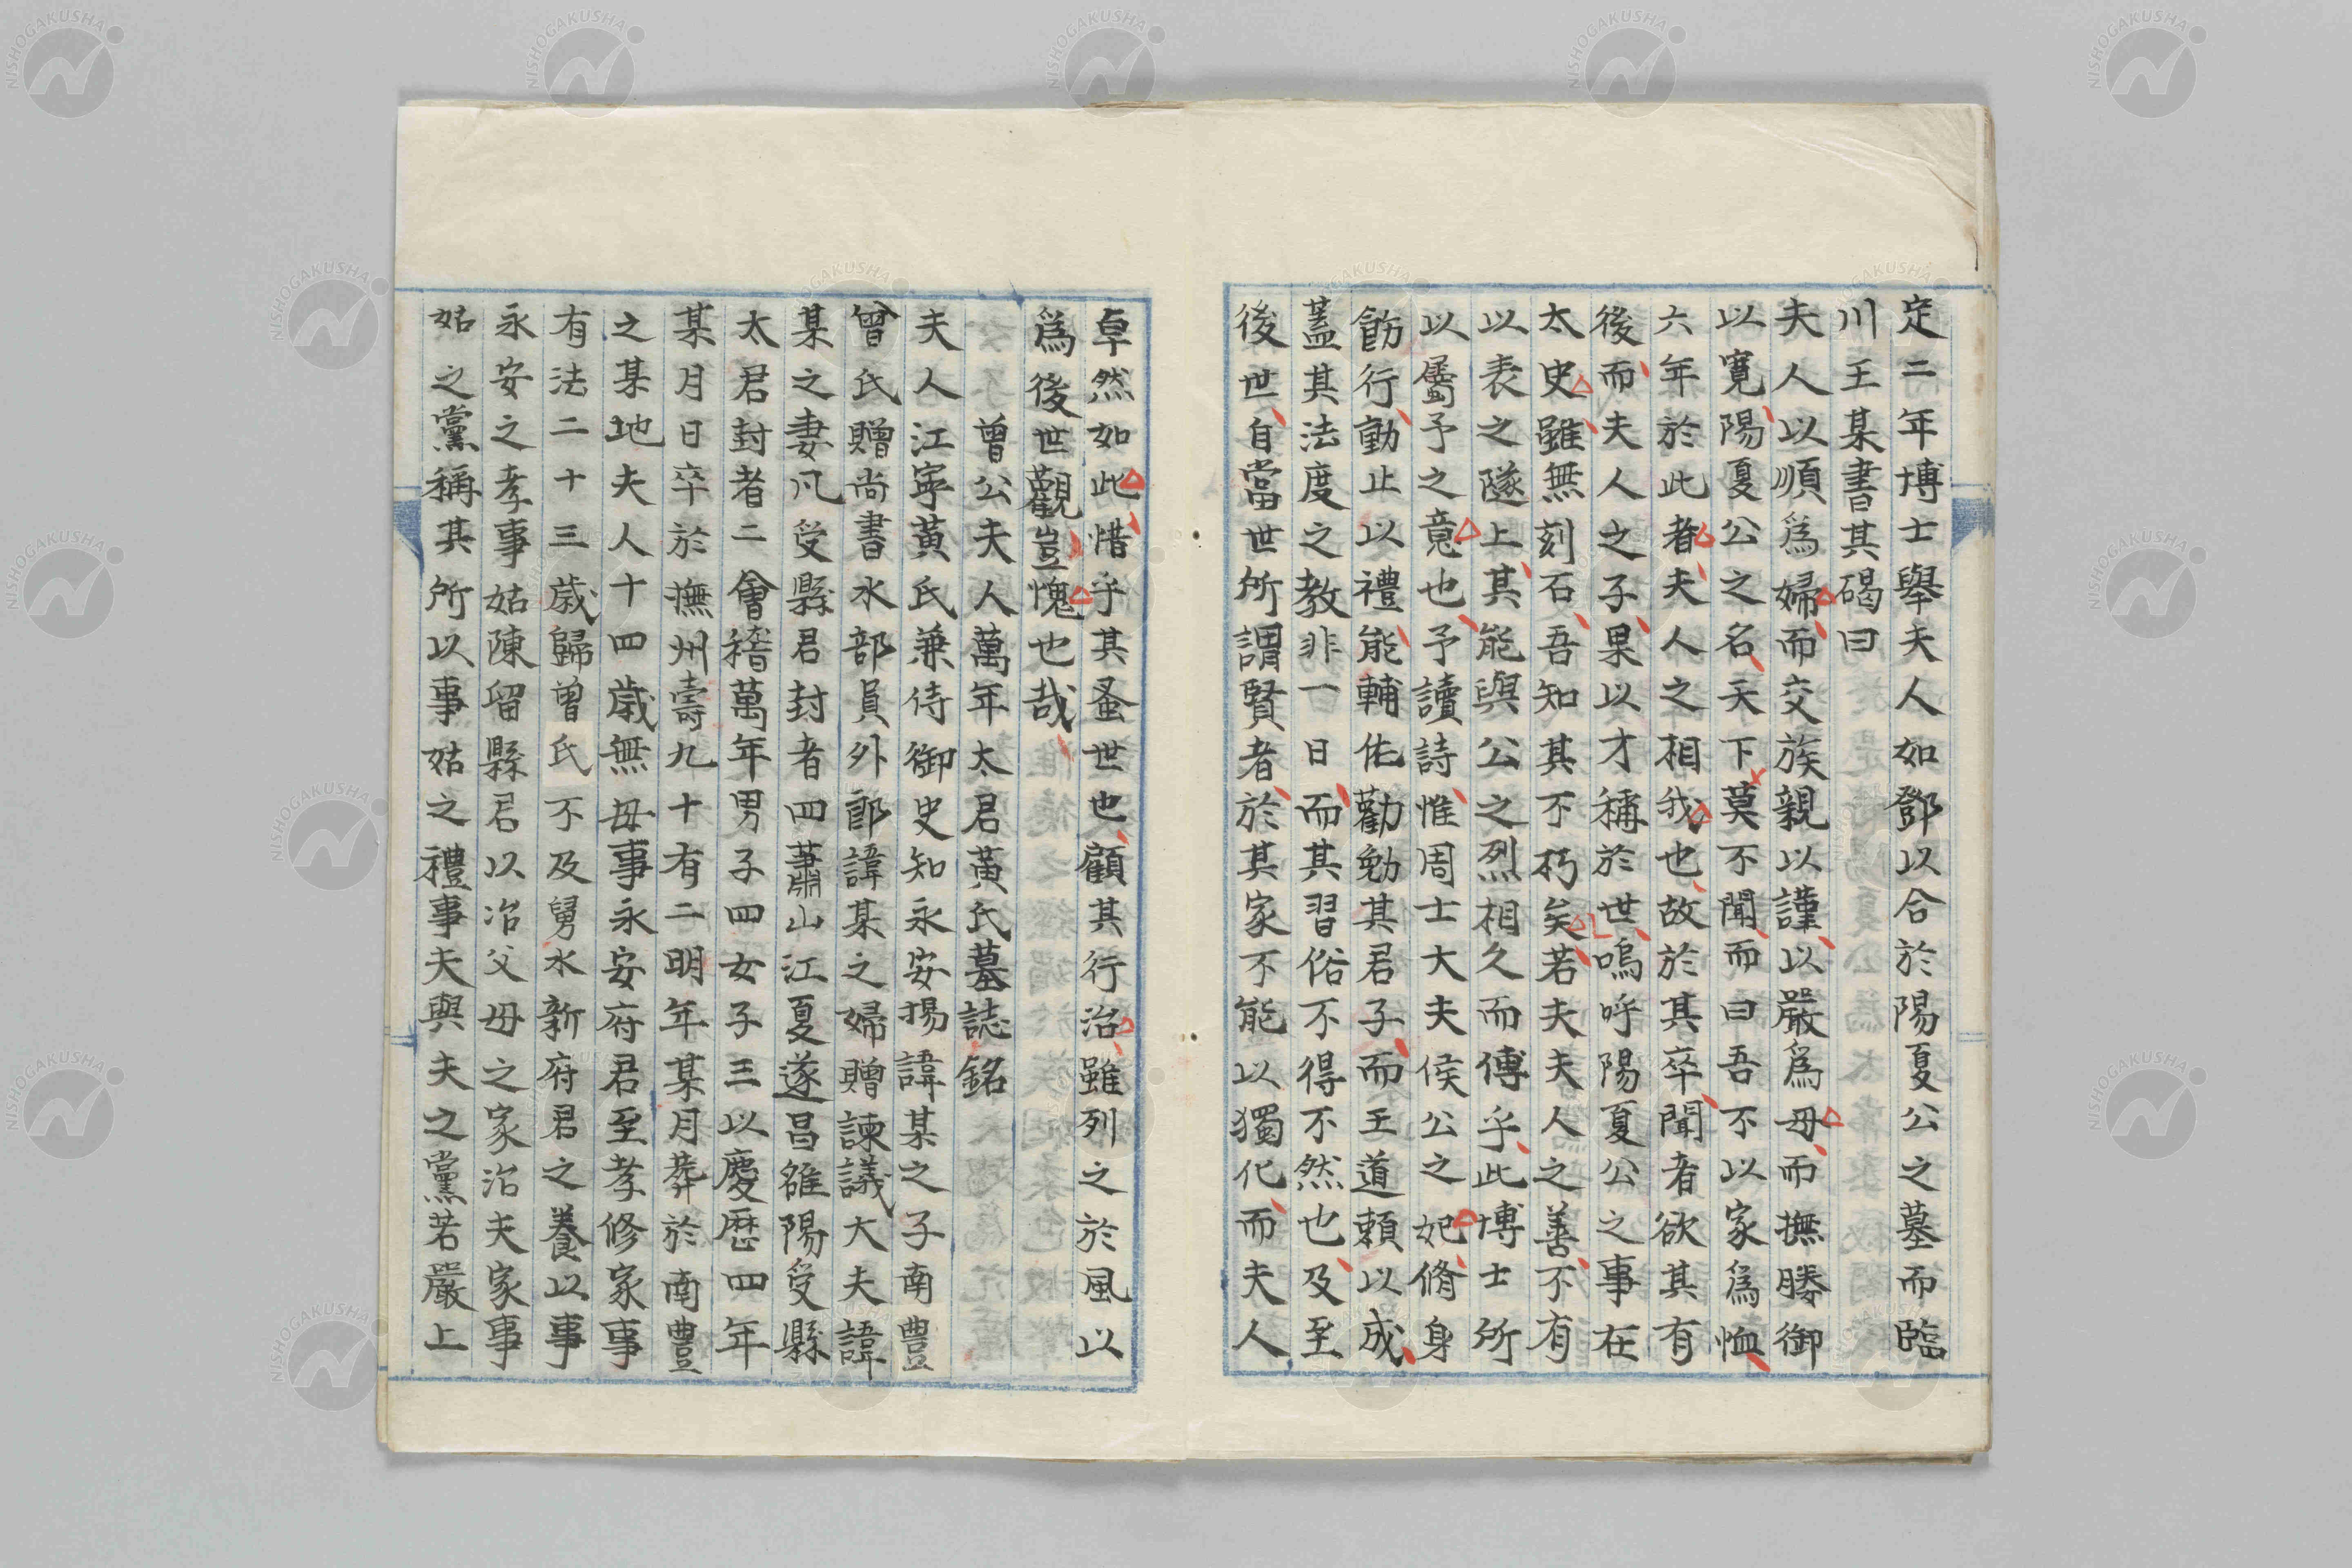 定二年博士舉夫人如鄧以合於陽夏公之墓而臨
川王某書其碣曰
夫人以順爲婦而交族親以謹以嚴爲母而撫媵御
以寛陽夏公之名天下莫不聞而曰吾不以家爲恤
六年於此者夫人之相我也故於其卒聞者欲其有
後而夫人之子果以才稱於世嗚呼陽夏公之事在
太史雖無刻石吾知其不朽矣若夫夫人之善不有
以表之隧上其能與公之烈相久而傳乎此博士所
以屬予之意也予讀詩惟周士大夫侯公之妃脩身
飭行動止以禮能輔佐勸勉其君子而王道頼以成
蓋其法度之教非一日而其習俗不得不然也及至
後世自當世所謂賢者於其家不能以獨化而夫人
卓然如此惜乎其蚤世也顧其行治雖列之於風以
爲後世觀豈愧也哉
曾公夫人萬年太君黄氏墓誌銘
夫人江寧黄氏兼侍御史知永安揚諱某之子南豊
曾氏贈尚書水部員外郎諱某之婦贈諫議大夫諱
某之妻凡受縣君封者四蕭山江夏遂昌雒陽受縣
太君封者二會稽萬年男子四女子三以慶歴四年
某月日卒於撫州壽九十有二明年某月葬於南豊
之某地夫人十四歳無母事永安府君至孝修家事
有法二十三歳歸曾氏不及舅水新府君之養以事
永安之孝事姑陳留縣君以治父母之家治夫家事
姑之黨稱其所以事姑之禮事夫與夫之黨若嚴上
NISHOGAKUSHA